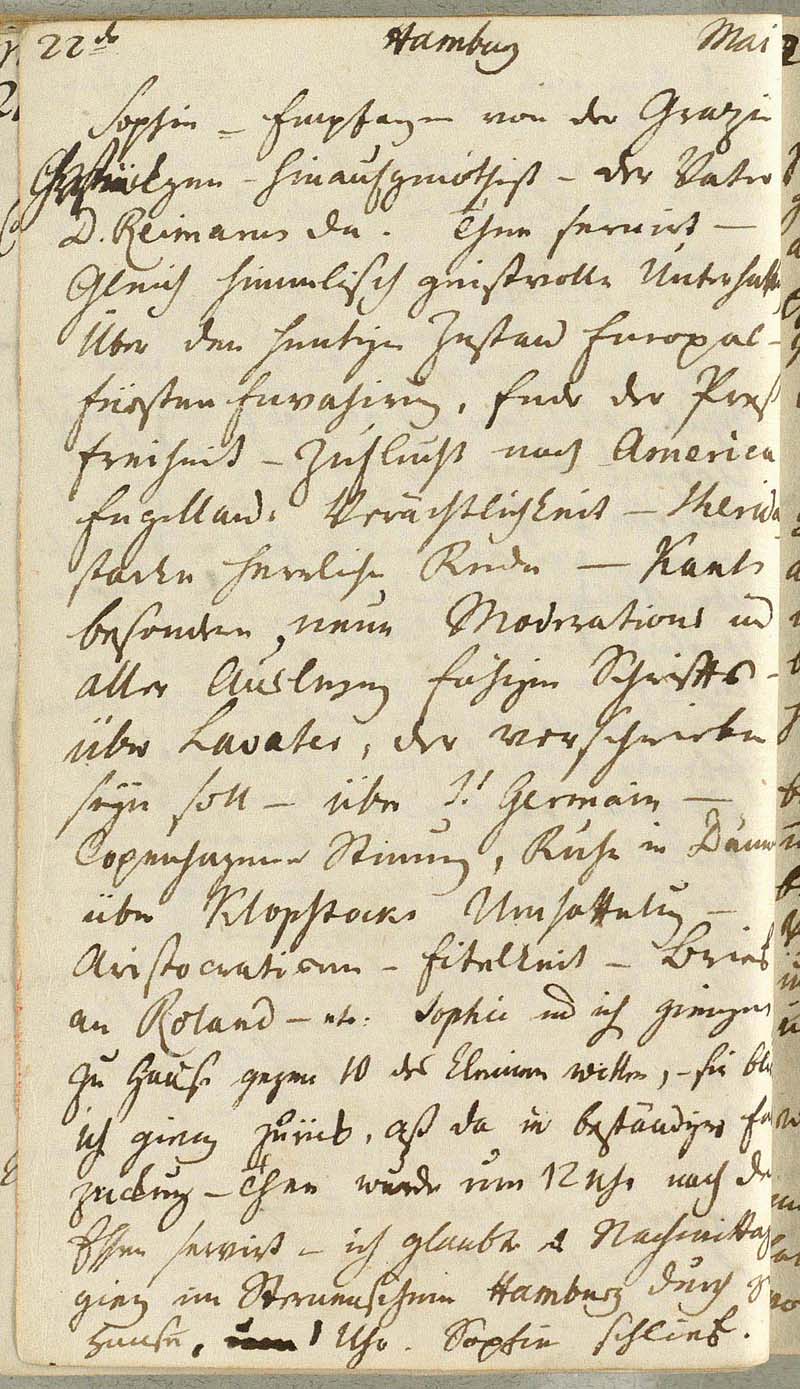 22ds Hamburg Mai
Sophie – Empfangen von der Grazie
hinaufgenöthigt – der Vater
D. Reimarus da. Thee servirt –
Gleich himmlisch geistvolle Unterhalt
Über den heutigen Zustand Europas –
Fürsten Ende der Preß
freiheit – Zuflucht nach America
Engellands Verächtlichkeit – Sherida
starke herrliche Rede – Kants
besondern, neuen Moderations und
aller Auslegung fähigen Schrifts –
über Lavater, der verschrieben
seyn soll – über St Germain –
Copenhagener Stimmung, Ruhe in Dänn
über Klopstocks Umsattelung –
Aristocratism – Eitelkeit – Brief
an Roland – etc. Sophie und ich giengen
zu Hause gegen 10 des kleinen willen, – sie bli
ich gieng zurück, aß da in beständiger
zuckung – Thee wurde um 12 Uhr nach de
Essen servirt – ich glaubte Nachmittag
gieng im Sternenschein Hamburg durch
Hause, 1 Uhr. Sophie schlief.